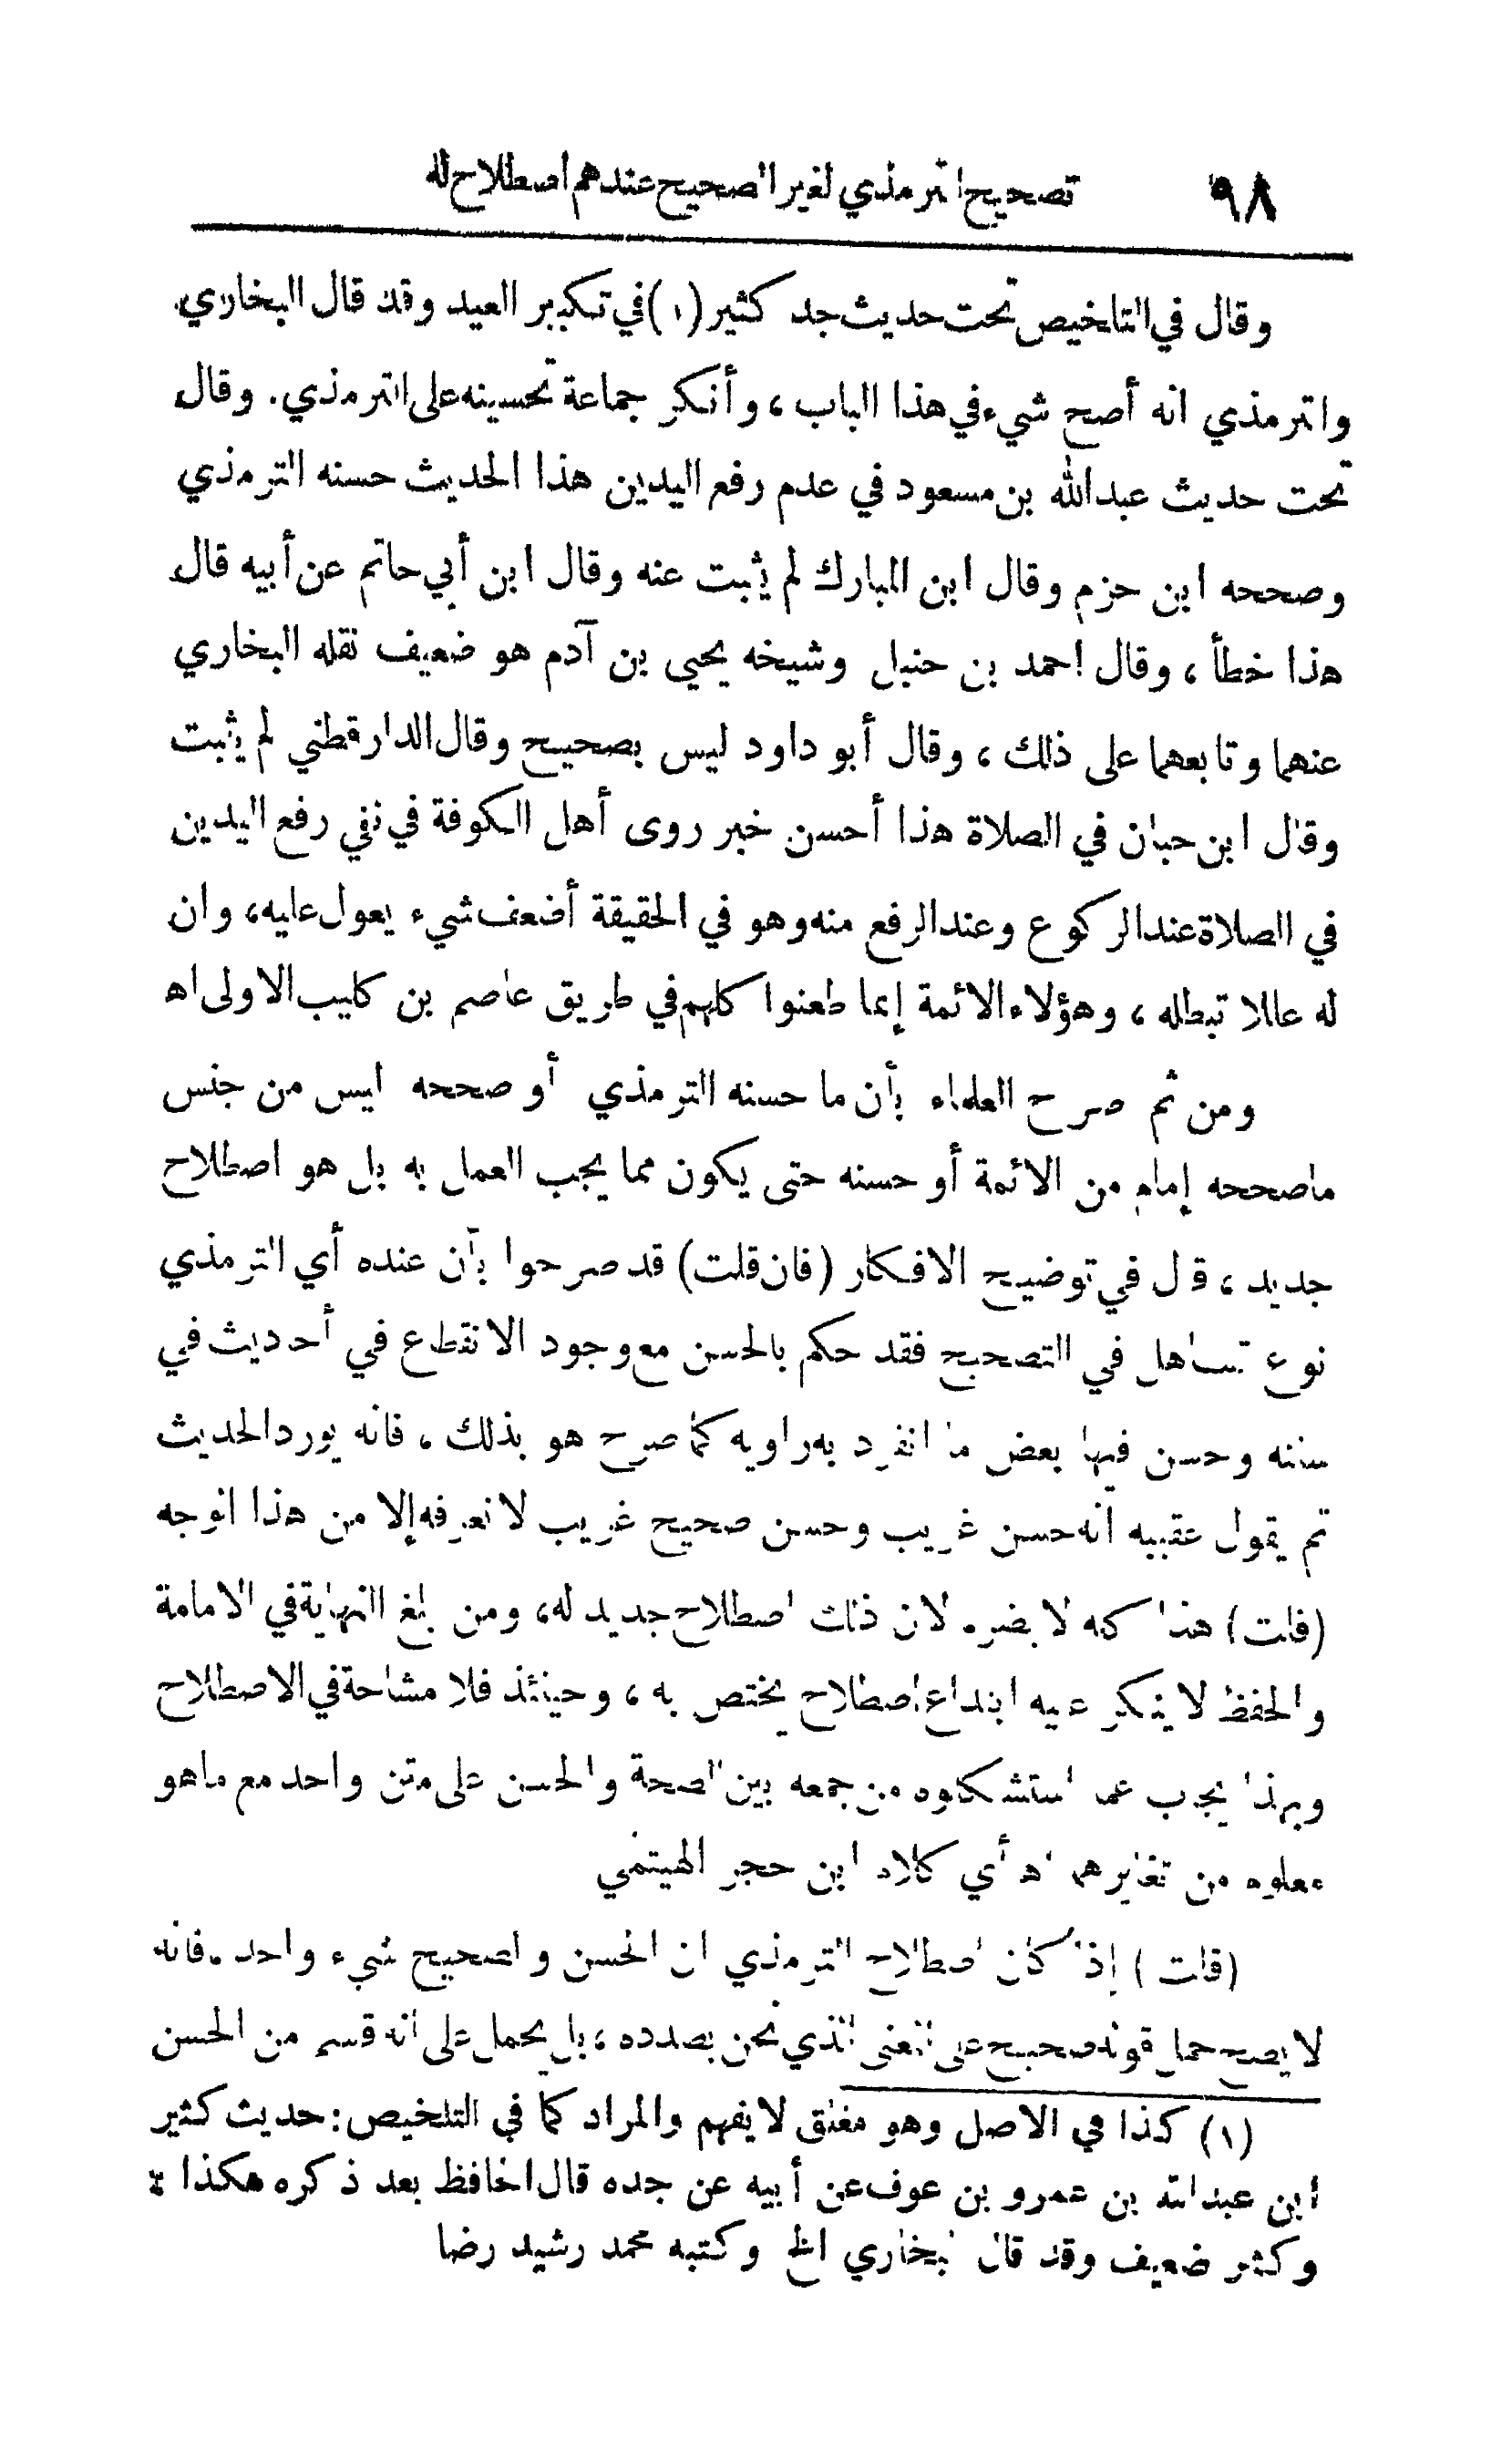 ٩٨ تصحيح الترمذي لغير الصحيح عندهم اصطلاح له
وقال في التلخيص تحت حديث جد كثير (١) في تكبير العيد وقد قال البخاري
والترمذي انه أصح شيء في هذا الباب ، وأنكر جماعة تحسينه على الترمذي . وقال
تحت حديث عبدالله بن مسعود في عدم رفع اليدين هذا الحديث حسنه الترمذي
وصححه ابن حزم وقال ابن المبارك لم يثبت عنه وقال ابن أبي حاتم عن أبيه قال
هذا خطأ ، وقال احمد بن حنبل وشيخه يحيى بن آدم هو ضعيف نقله البخاري
عنهما وتابعهما على ذلك ، وقال أبو داود ليس بصحيح وقال الدارقطني لم يثبت
وقال ابن حبان في الصلاة هذا أحسن خبر روى أهل الكوفة في نفي رفع اليدين
في الصلاة عند الركوع وعند الرفع منه وهو في الحقيقة أضعف شيء يعول عليه ، وان
له عللا تبطله ، وهؤلاء الائمة إنما طعنوا كلهم في طريق عاصم بن كليب الاولى اه
ومن ثم صرح العلماء بأن ما حسنه الترمذي أو صححه ليس من جنس
ماصححه إمام من الائمة أو حسنه حتى يكون مما يجب العمل به بل هو اصطلاح
جديد ، قال في توضيح الافكار (فان قلت) قد صرحوا بأن عنده أي الترمذي
نوع تساهل في التصحيح فقد حكم بالحسن مع وجود الانقطاع في أحاديث في
سننه وحسن فيها بعض ما انفرد به راويه كما صرح هو بذلك ، فانه يورد الحديث
ثم يقول عقيبه انه حسن غريب وحسن صحيح غريب لا نعرفه إلا من هذا الوجه
(قلت) هذا كله لا يضره لان ذلك اصطلاح جديد له ، ومن بلغ النهاية في الامامة
والحفظ لا ينكر عليه ابتداع اصطلاح يختص به ، وحينئذ فلا مشاحة في الاصطلاح
وبهذا يجاب عما استشكلوه من جمعه بين الصحة والحسن على متن واحد مع ماهو
معلوم من تغايرهما اه أي كلام ابن حجر الهيتمي
(قلت) إذا كان اصطلاح الترمذي ان الحسن والصحيح شيء واحد ، فانه
لا يصح حمل قوله صحيح على المعنى الذي نحن بصدده ، بل يحمل على انه قسم من الحسن
(١) كذا في الاصل وهو مغلق لا يفهم والمراد كما في التلخيص : حديث كثير
ابن عبدالله بن عمرو بن عوف عن أبيه عن جده قال الحافظ بعد ذكره هكذا :
وكثير ضعيف وقد قال البخاري الخ وكتبه محمد رشيد رضا